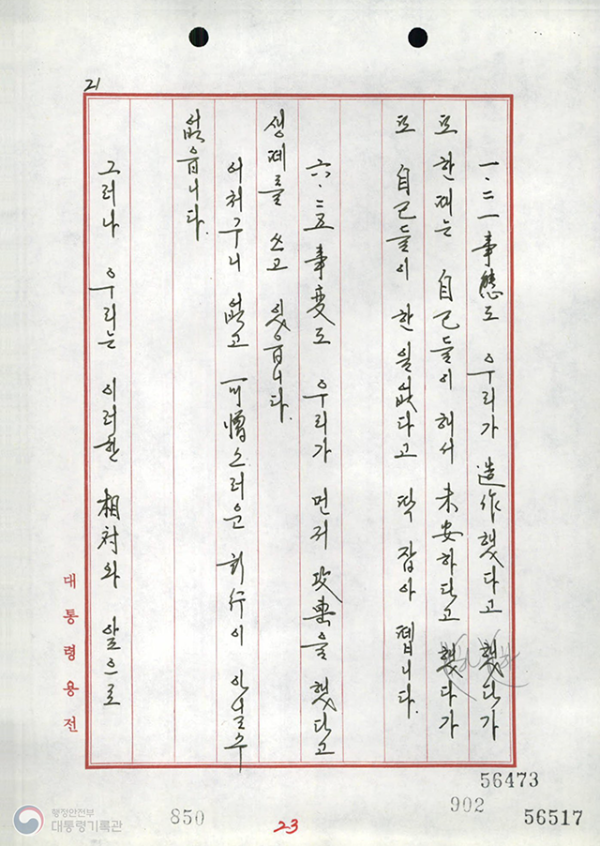 21
一.二一 事態도 우리가 造作했다고 했다가
또 한때는 自己들이 해서 未安하다고 했다가
또 自己들이 한 일 없다고 딱 잡아 뗍니다.
六.二五 事変도 우리가 먼저 攻擊을 했다고
생떼를 쓰고 있읍니다.
어처구니 없고 可憎스러운 行이 있을 수
없읍니다.
그러나 우리는 이러한 相対와 앞으로
대통령용전
56473
902
56517
850
23
행정안전부
대통령기록관